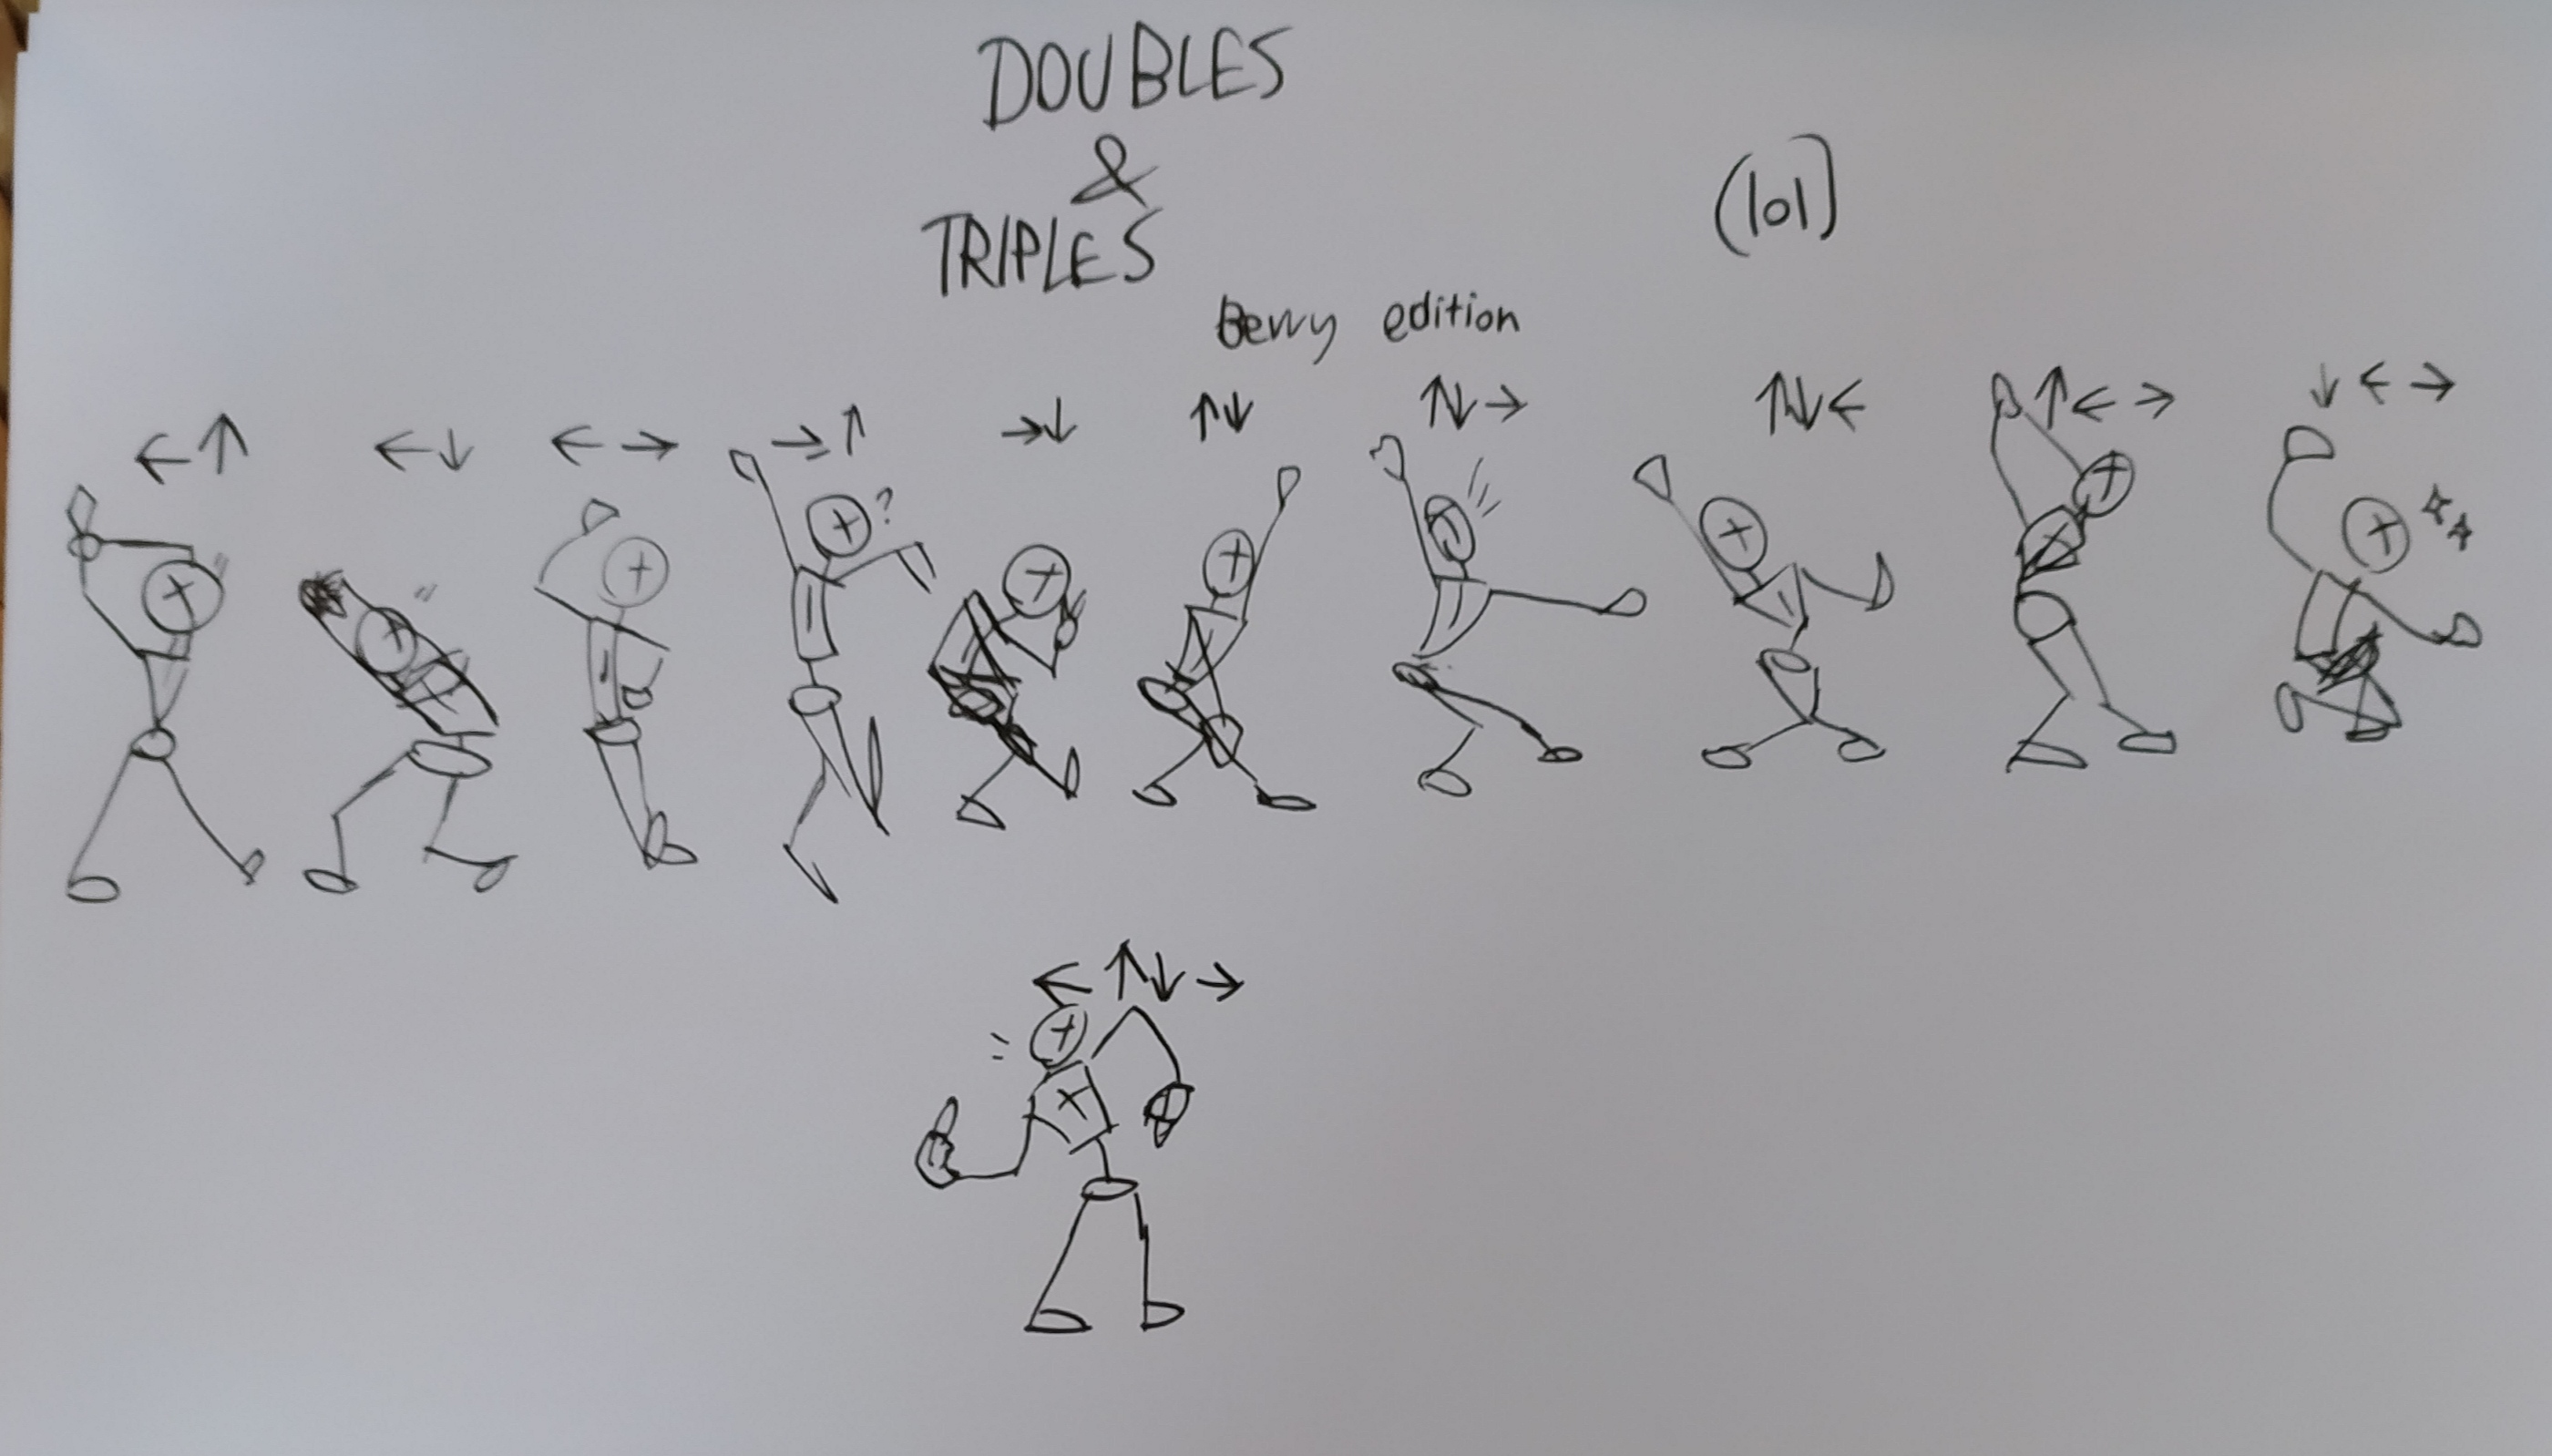 DOUBLES
&
TRIPLES
(lol)
Berry edition
← ↑
← ↓
← →
→ ↑
→ ↓
↑ ↓
↑ ↓ →
↑ ↓ ←
↑ ← →
↓ ← →
?
← ↑ ↓ →